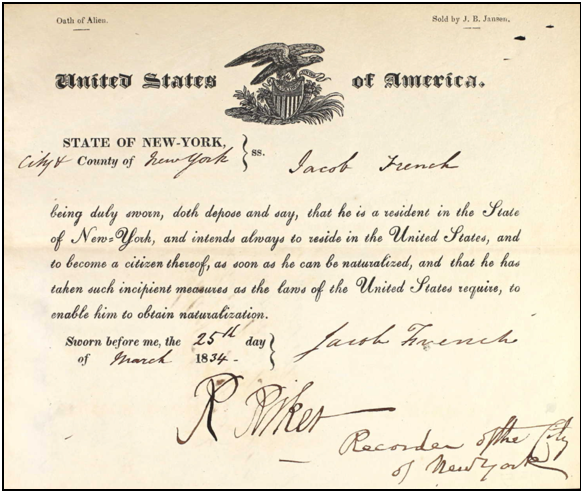 Oath of Alien.
Sold by J. B. Jansen.
United States of America.
STATE OF NEW-YORK,
City & County of New York } ss.
Jacob French
being duly sworn, doth depose and say, that he is a resident in the State
of New=York, and intends always to reside in the United States, and
to become a citizen thereof, as soon as he can be naturalized, and that he has
taken such incipient measures as the laws of the United States require, to
enable him to obtain naturalization.
Sworn before me, the 25th day
of March 1834 -
Jacob French
R Riker
Recorder of the City
of New York